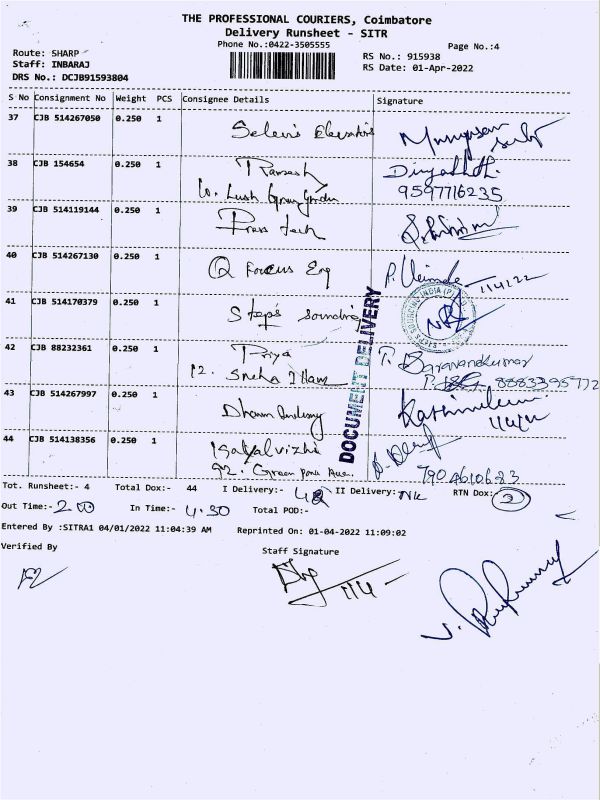 THE PROFESSIONAL COURIERS, Coimbatore
Delivery Runsheet - SITR
Phone No.:0422-3505555
Page No.:4
Route: SHARP
Staff: INBARAJ
DRS No.: DCJB91593804
RS No.: 915938
RS Date: 01-Apr-2022
S No Consignment No Weight PCS Consignee Details Signature
37 CJB 514267050 0.250 1 Selvis Elevators
38 CJB 154654 0.250 1 Ramesh
10. Lush Green Garden
9597716235
39 CJB 514119144 0.250 1 Press tech
40 CJB 514267130 0.250 1 Q Focus Eng
1/4/22
41 CJB 514170379 0.250 1 Steps Sourcing
STEPS SOURCING INDIA (P)
DOCUMENT DELIVERY
42 CJB 88232361 0.250 1 Priya
12. Sneha Illam
P. Saravanakumar
8883395772
43 CJB 514267997 0.250 1 Dharm
44 CJB 514138356 0.250 1 Isaiyalvizhi
92. Green Park Ave.
7904610683
Tot. Runsheet:- 4 Total Dox:- 44 I Delivery:- 42 II Delivery:- Nil RTN Dox:- 2
Out Time:- 2.00 In Time:- 4.30 Total POD:-
Entered By :SITRA1 04/01/2022 11:04:39 AM Reprinted On: 01-04-2022 11:09:02
Verified By
Staff Signature
1/4